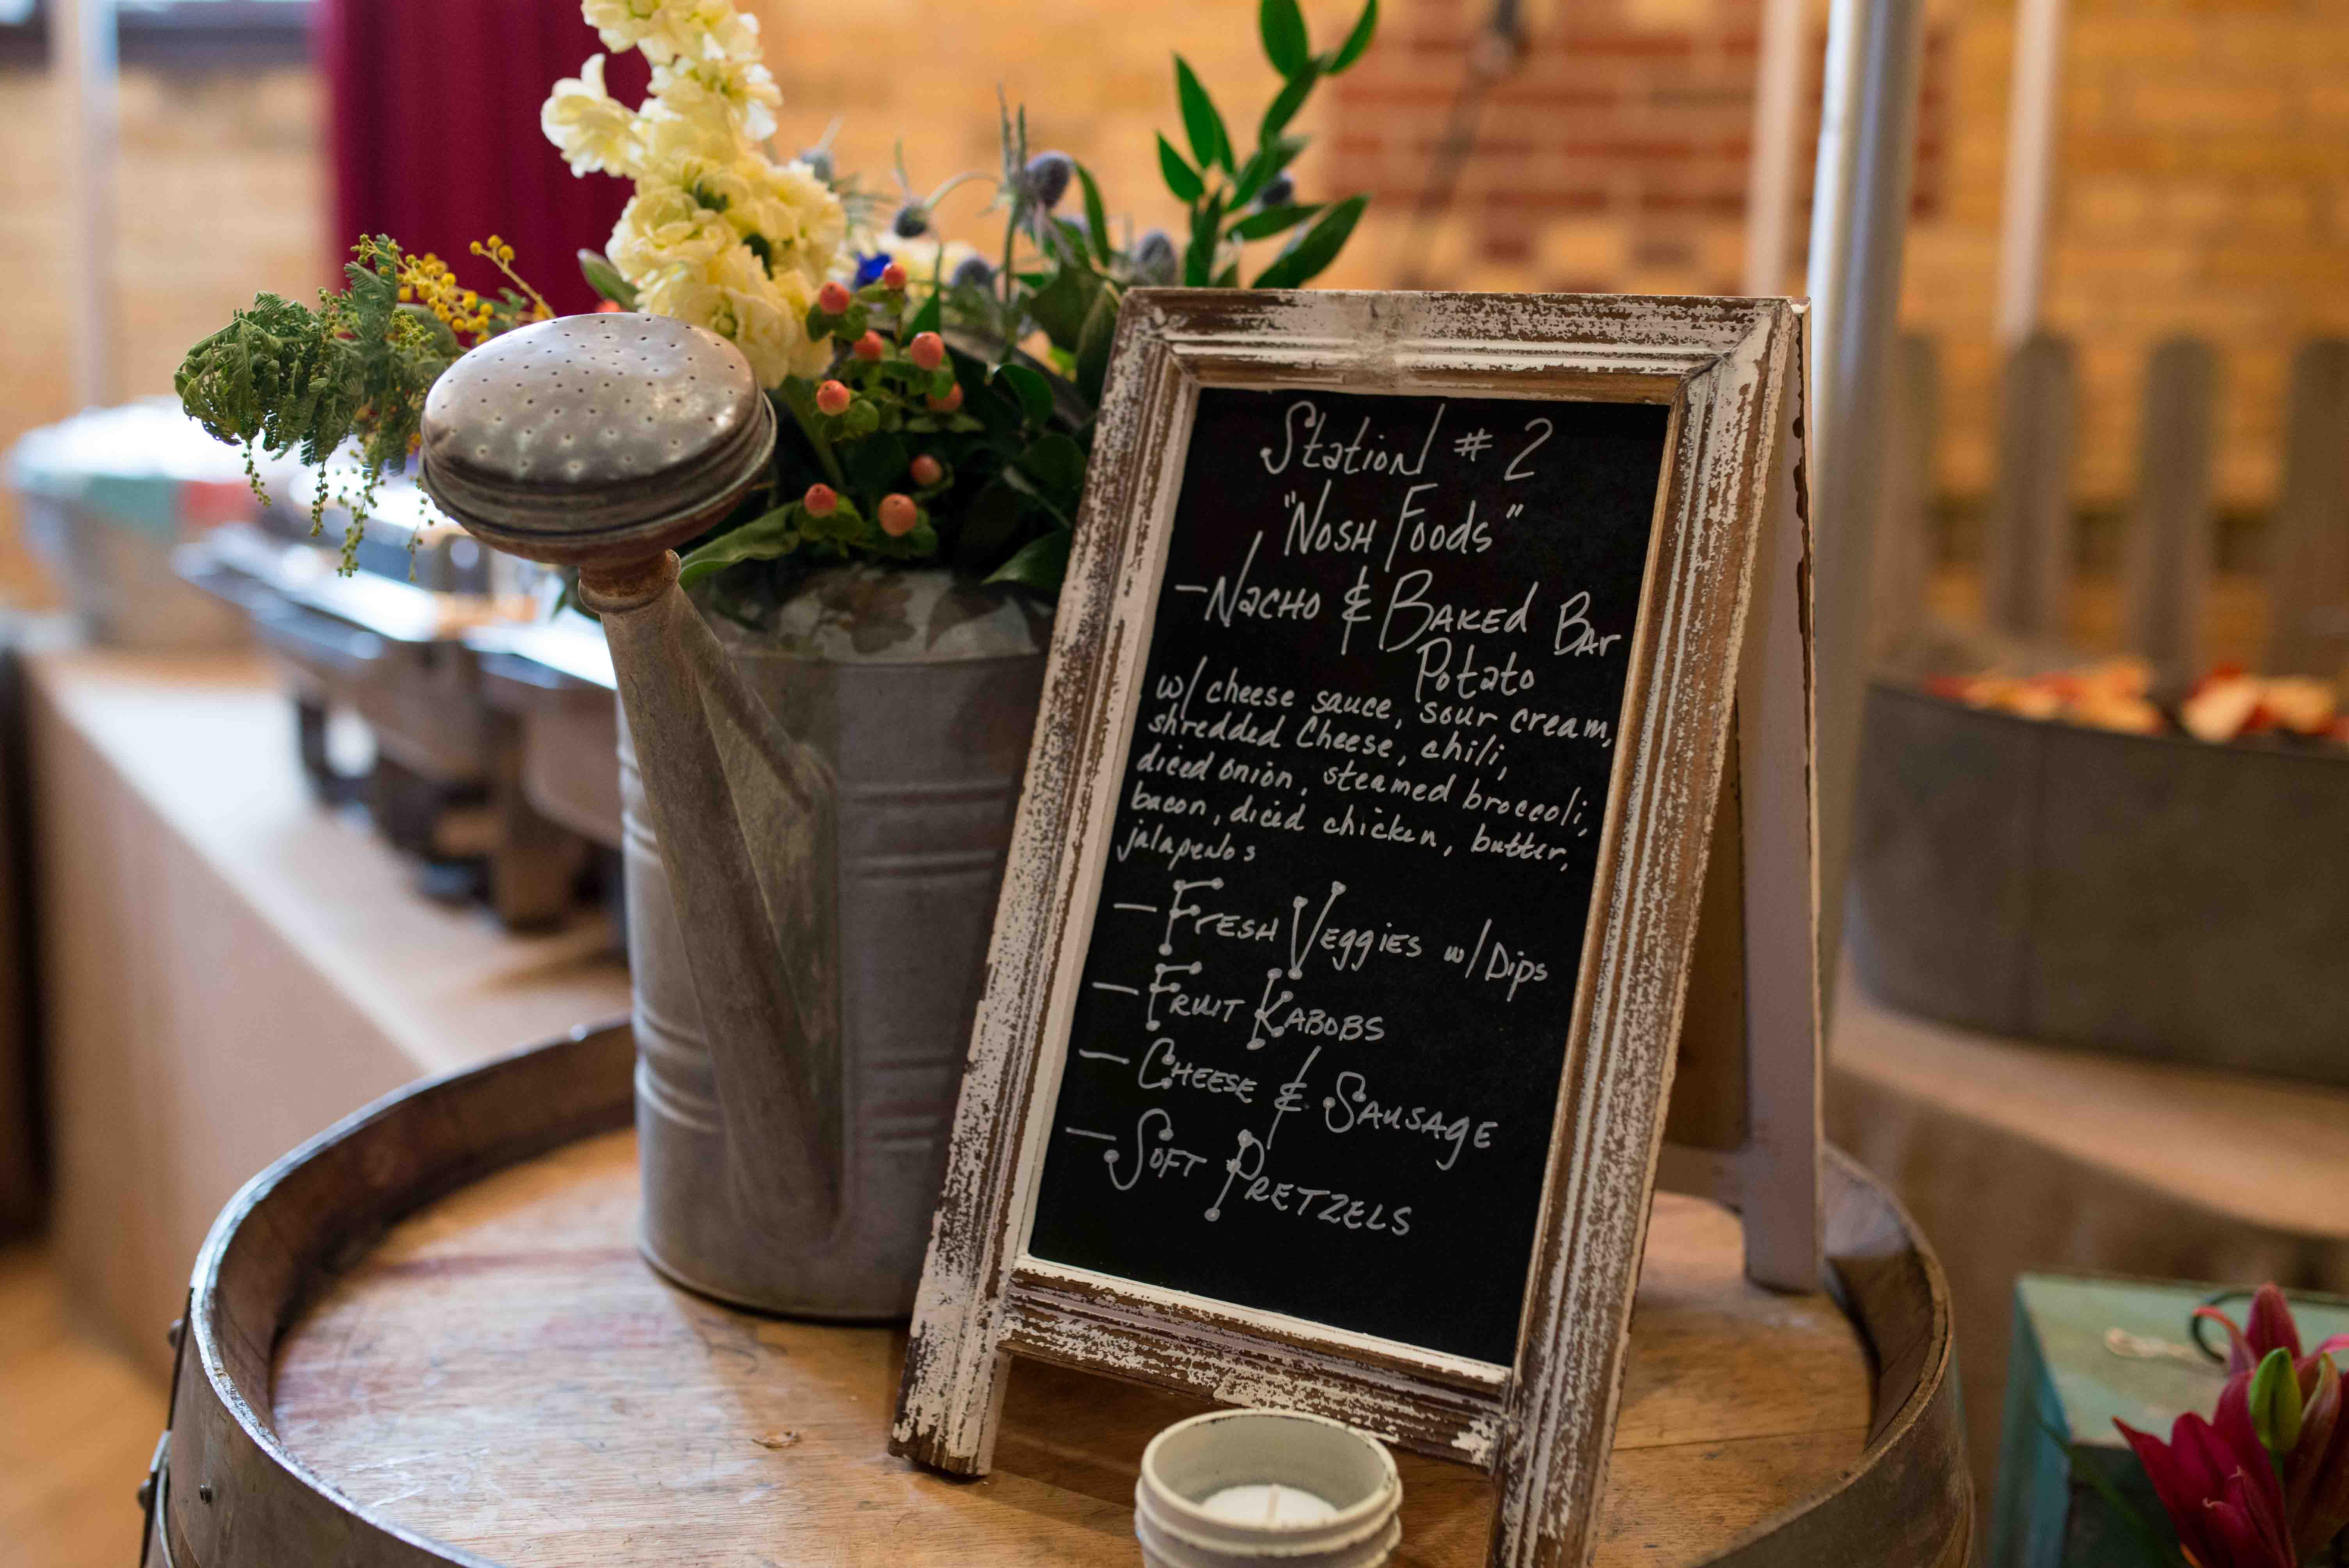 Station # 2
"Nosh Foods"
- Nacho & Baked Bar
Potato
w/ cheese sauce, sour cream,
shredded Cheese, chili,
diced onion, steamed broccoli,
bacon, diced chicken, butter,
jalapenos
- Fresh Veggies w/ Dips
- Fruit Kabobs
- Cheese & Sausage
- Soft Pretzels